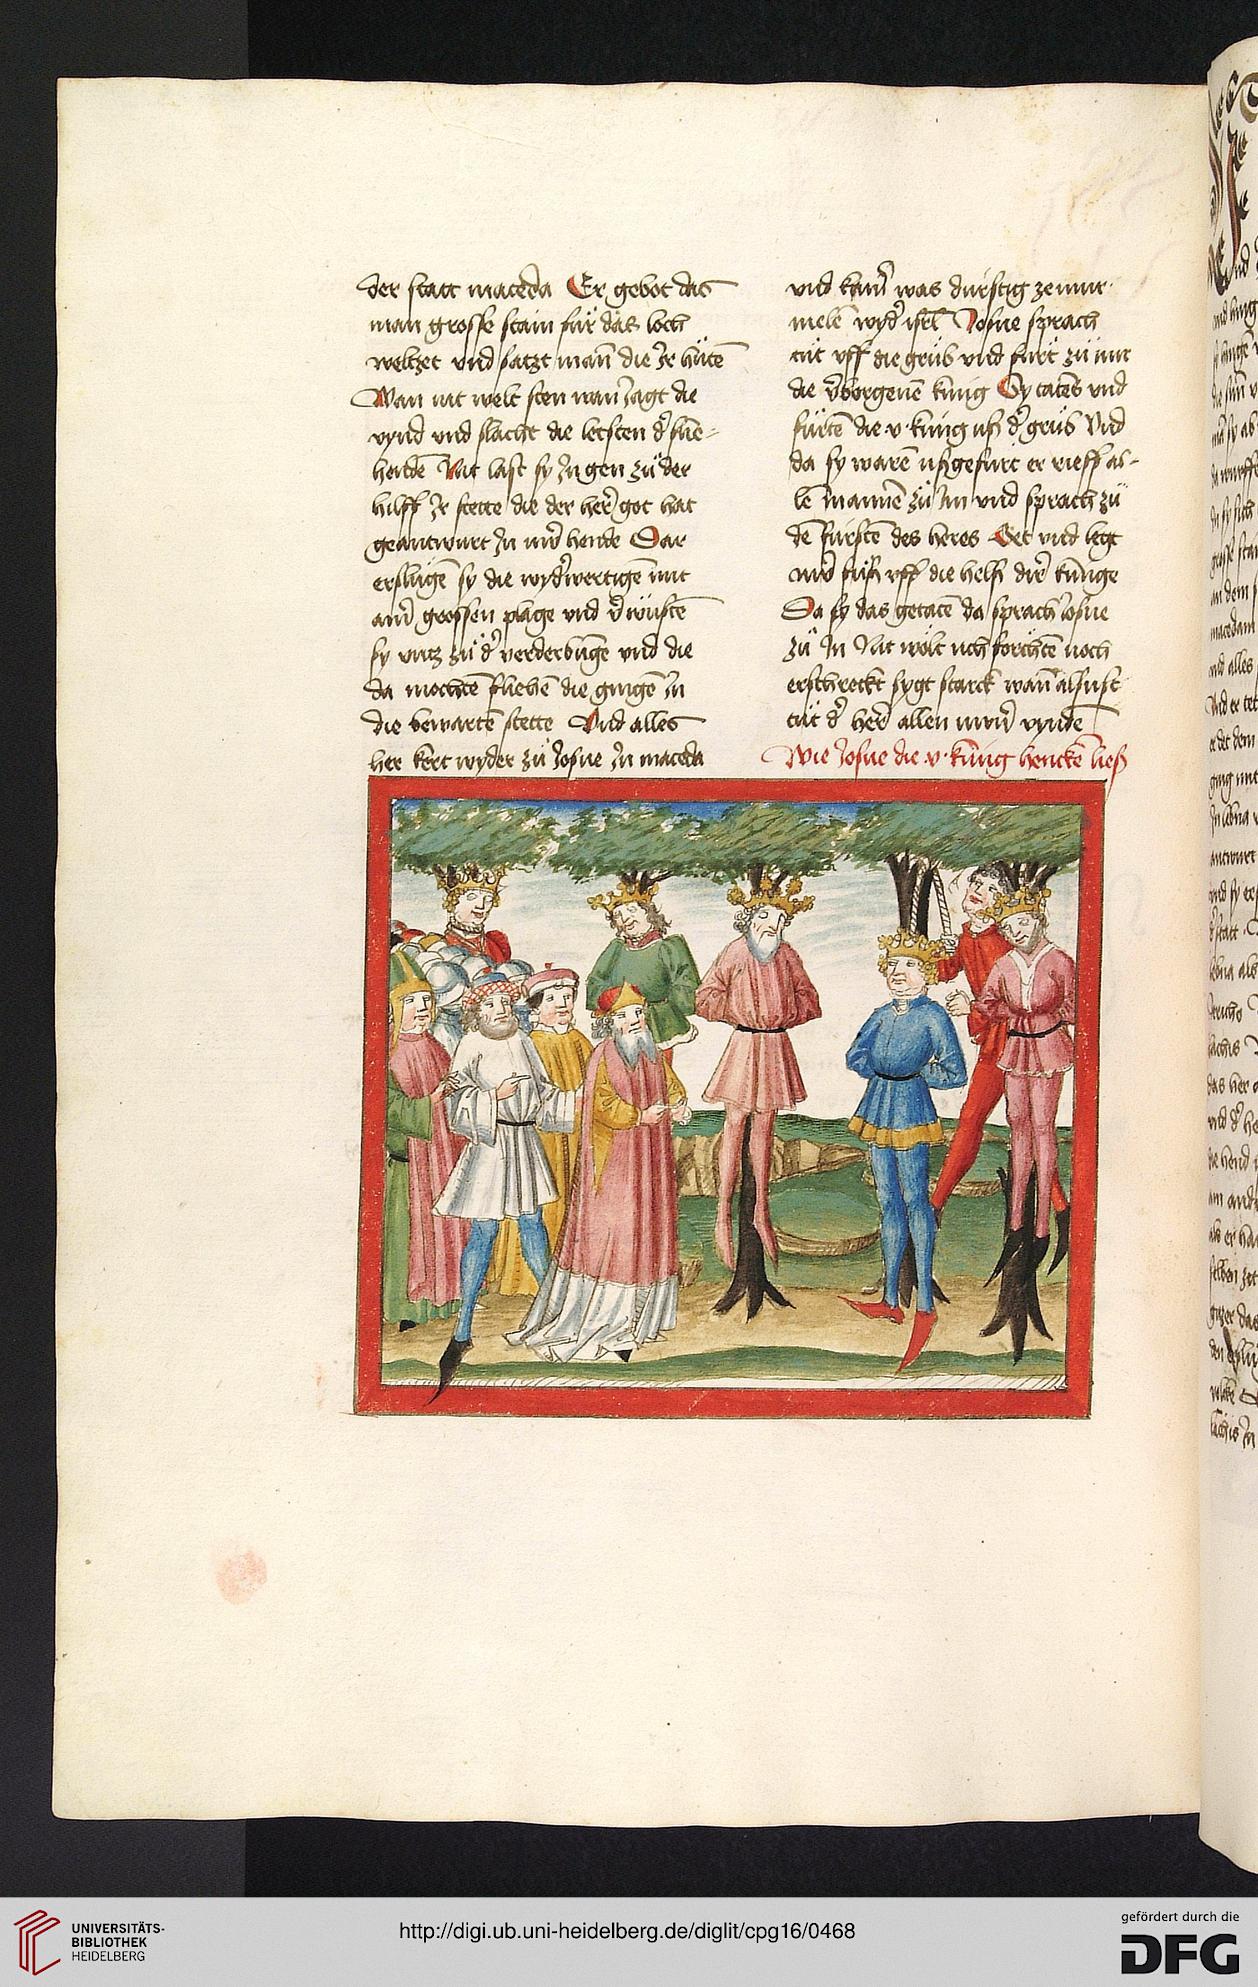 der statt maceda Er gebot das
man grosse stain für das loch
weltzet vnd satzt man̄ die Ir hůten
Wan nit welt sten wan̄ Jagt die
vynd vnd slacht die letsten d' flüe-
henden Nit last sy In gen zů der
hilff Ir stette die der her̄ got hat
geantwurt In uw̄r hende Dar
erslůgen sy die wyd'wertigē mit
ain̄ grossen plage vnd v'wüstē
sy vntz zů d' verderbunge vnd die
da mochten fliehē die gingē In
die bewartē stette Vnd alles
her kert wyder zů Josue In maceda
vnd kain̄ was durstig ze mur-
melē wyd' isr̄l Josue sprach
tůt vff die grůb vnd fürt zů mir
die v'borgenē künig Sy tatēs vnd
fürtē die v künig uß d' grůb Vnd
da sy warē ußgefürt er rieff al-
le mannē zů Im vnd sprach zů
dē fürstē des heres Get vnd legt
uw̄r füß vff die helß dir̄ künige
Da sy das getatē da sprach Josue
zů In Nit wölt uch förchtē noch
erschreckt sygt starck wan̄ alsust
tůt d' her̄ allen uwn̄ vynde
Wie Josue die v künig henckē ließ
UNIVERSITÄTS-
BIBLIOTHEK
HEIDELBERG
http://digi.ub.uni-heidelberg.de/diglit/cpg16/0468
gefördert durch die
DFG